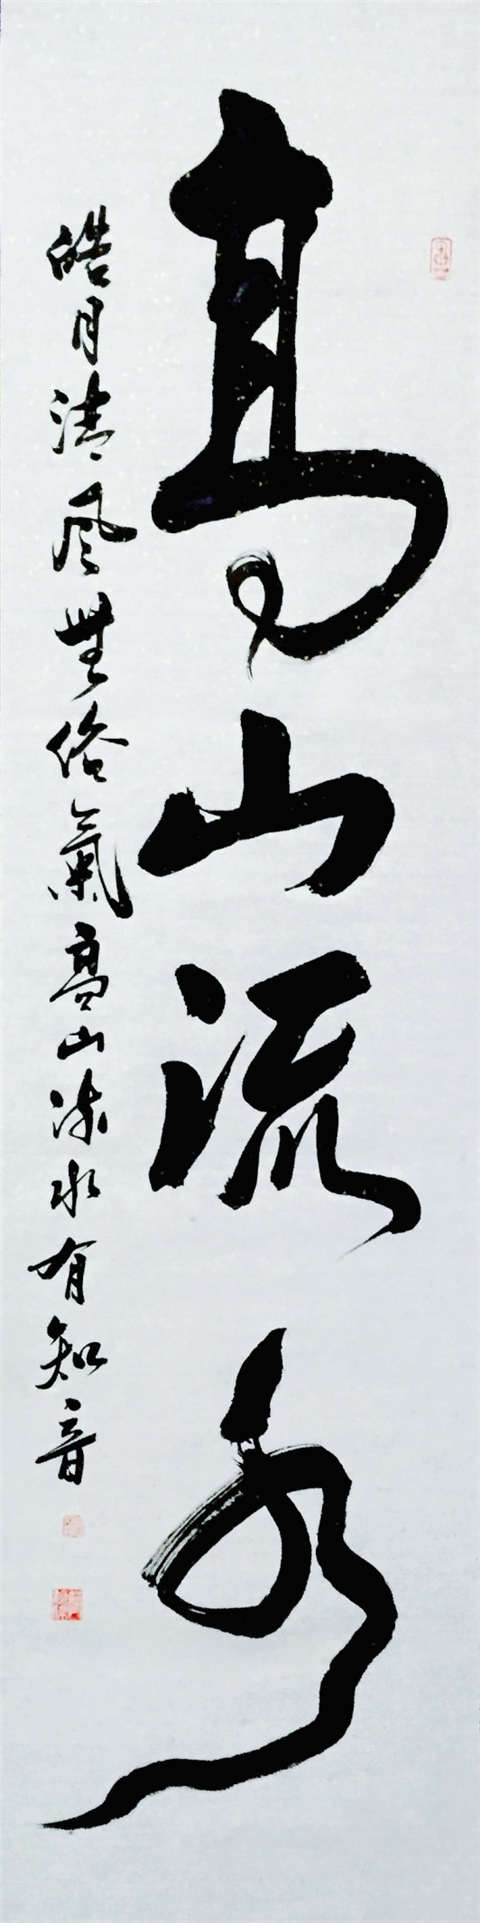 高山流水
皓月清风無俗氣高山流水有知音